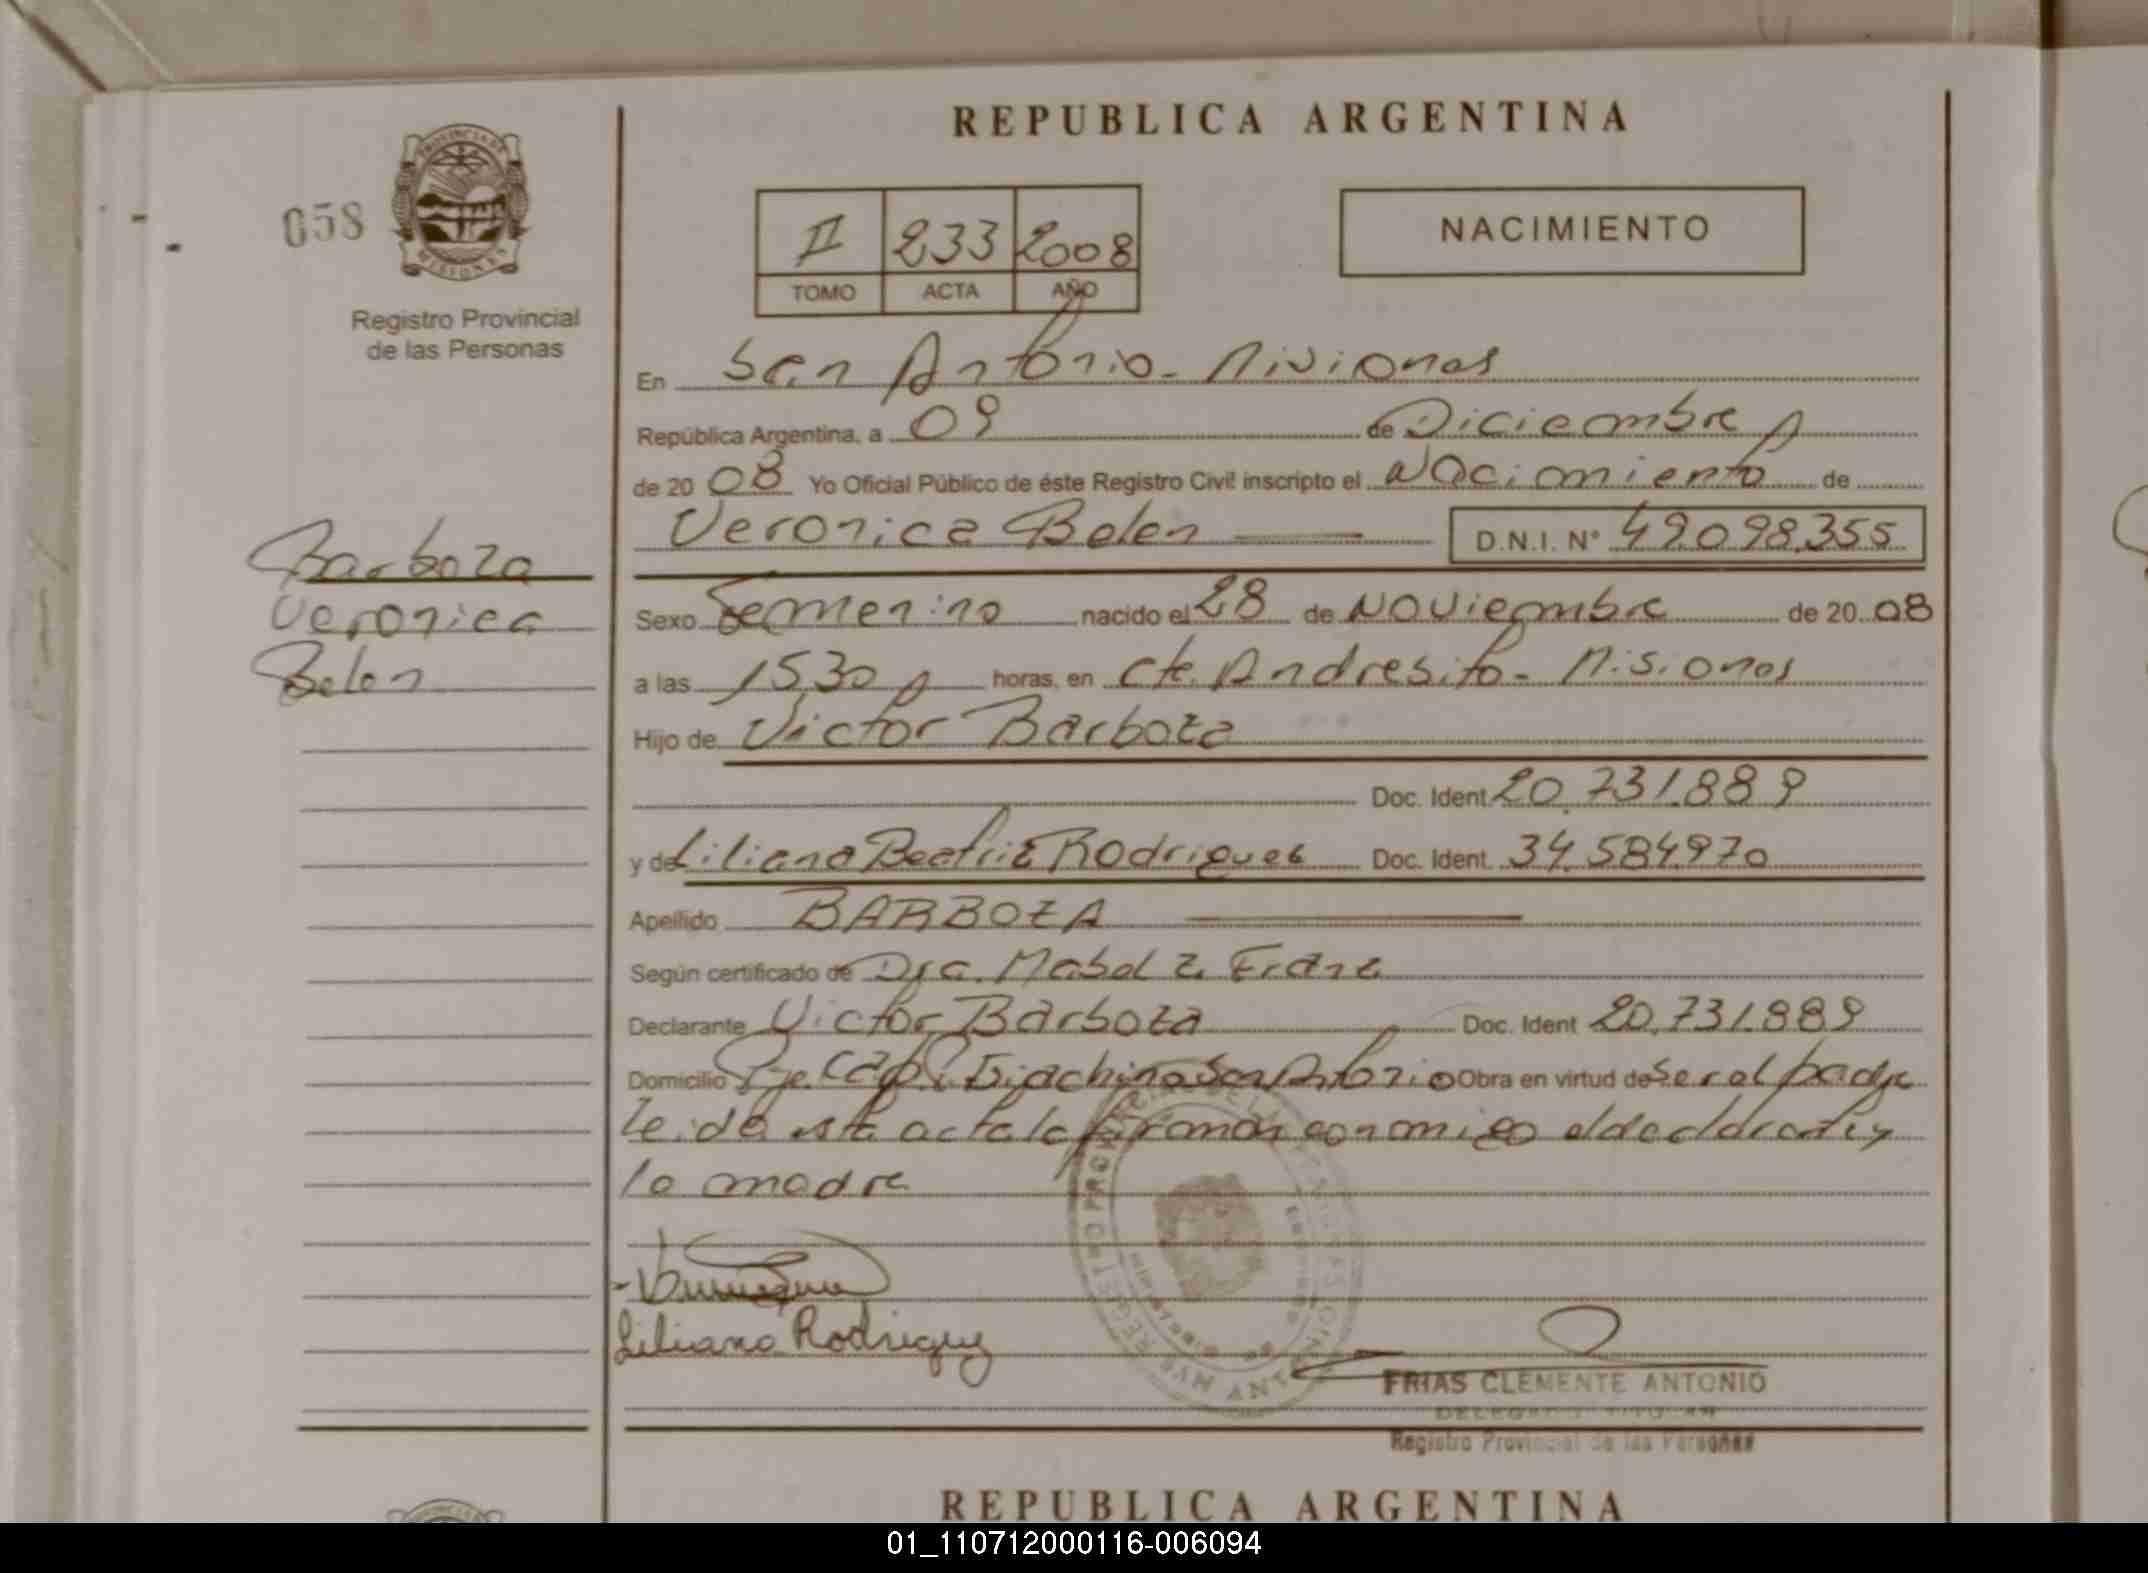 REPUBLICA ARGENTINA
058
PROVINCIA DE
MISIONES
Registro Provincial
de las Personas
II 233 2008
TOMO ACTA AÑO
NACIMIENTO
En San Antonio - Misiones
República Argentina, a 09 de Diciembre
de 20 08 Yo Oficial Público de éste Registro Civil inscripto el Nacimiento de
Veronica Belen D.N.I. N° 49.098.355
Barboza
Veronica
Belen
Sexo Femenino nacido el 28 de Noviembre de 20 08
a las 15,30 horas, en Cte. Andresito - Misiones
Hijo de Victor Barboza
Doc. Ident 20.731.889
y de Liliana Beatriz Rodrigues Doc. Ident. 34.584.970
Apellido BARBOZA
Según certificado de Dra. Mabel
Declarante Victor Barboza Doc. Ident 20.731.889
Domicilio San Antonio Obra en virtud de ser el padre
Leida esta acta la firman conmigo el declarante y
la madre
Liliana Rodriguez
FRIAS CLEMENTE ANTONIO
DELEGADO TITULAR
Registro Provincial de las Personas
REPUBLICA ARGENTINA
01_110712000116-006094